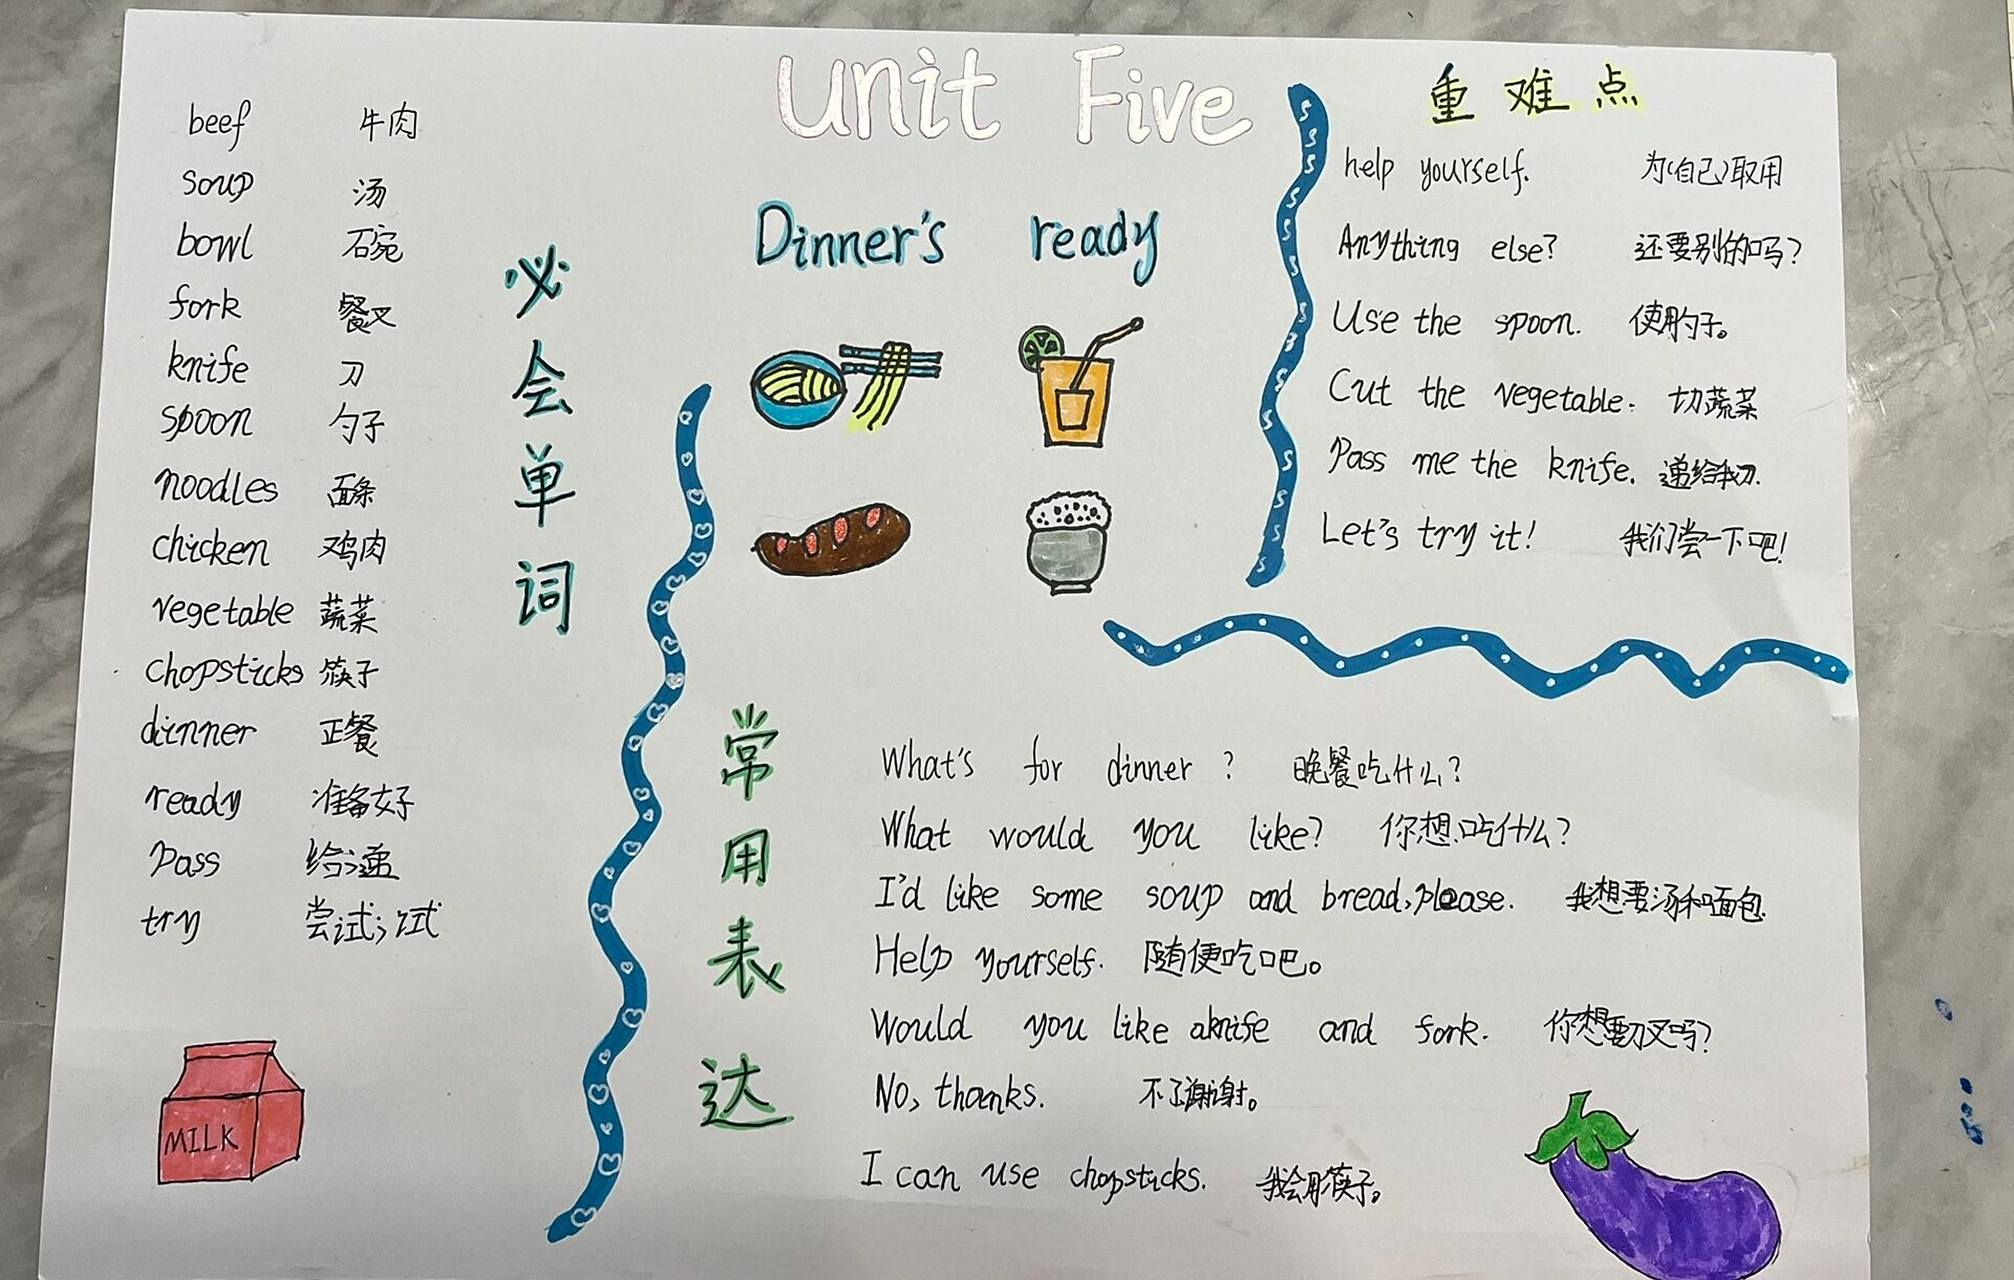 unit Five
beef 牛肉
soup 汤
bowl 碗
fork 餐叉
knife 刀
spoon 勺子
noodles 面条
chicken 鸡肉
vegetable 蔬菜
chopsticks 筷子
dinner 正餐
ready 准备好
Pass 给;递
try 尝试;试
必会单词
MILK
Dinner's ready
重难点
help yourself. 为(自己)取用
Anything else? 还要别的吗?
Use the spoon. 使用勺子。
Cut the vegetable. 切蔬菜
Pass me the knife. 递给我刀.
Let's try it! 我们尝一下吧!
常用表达
What's for dinner? 晚餐吃什么?
What would you like? 你想吃什么?
I'd like some soup and bread, please. 我想要汤和面包.
Help yourself. 随便吃吧。
Would you like aknife and fork. 你想要刀叉吗?
No, thanks. 不了谢谢。
I can use chopsticks. 我会用筷子。